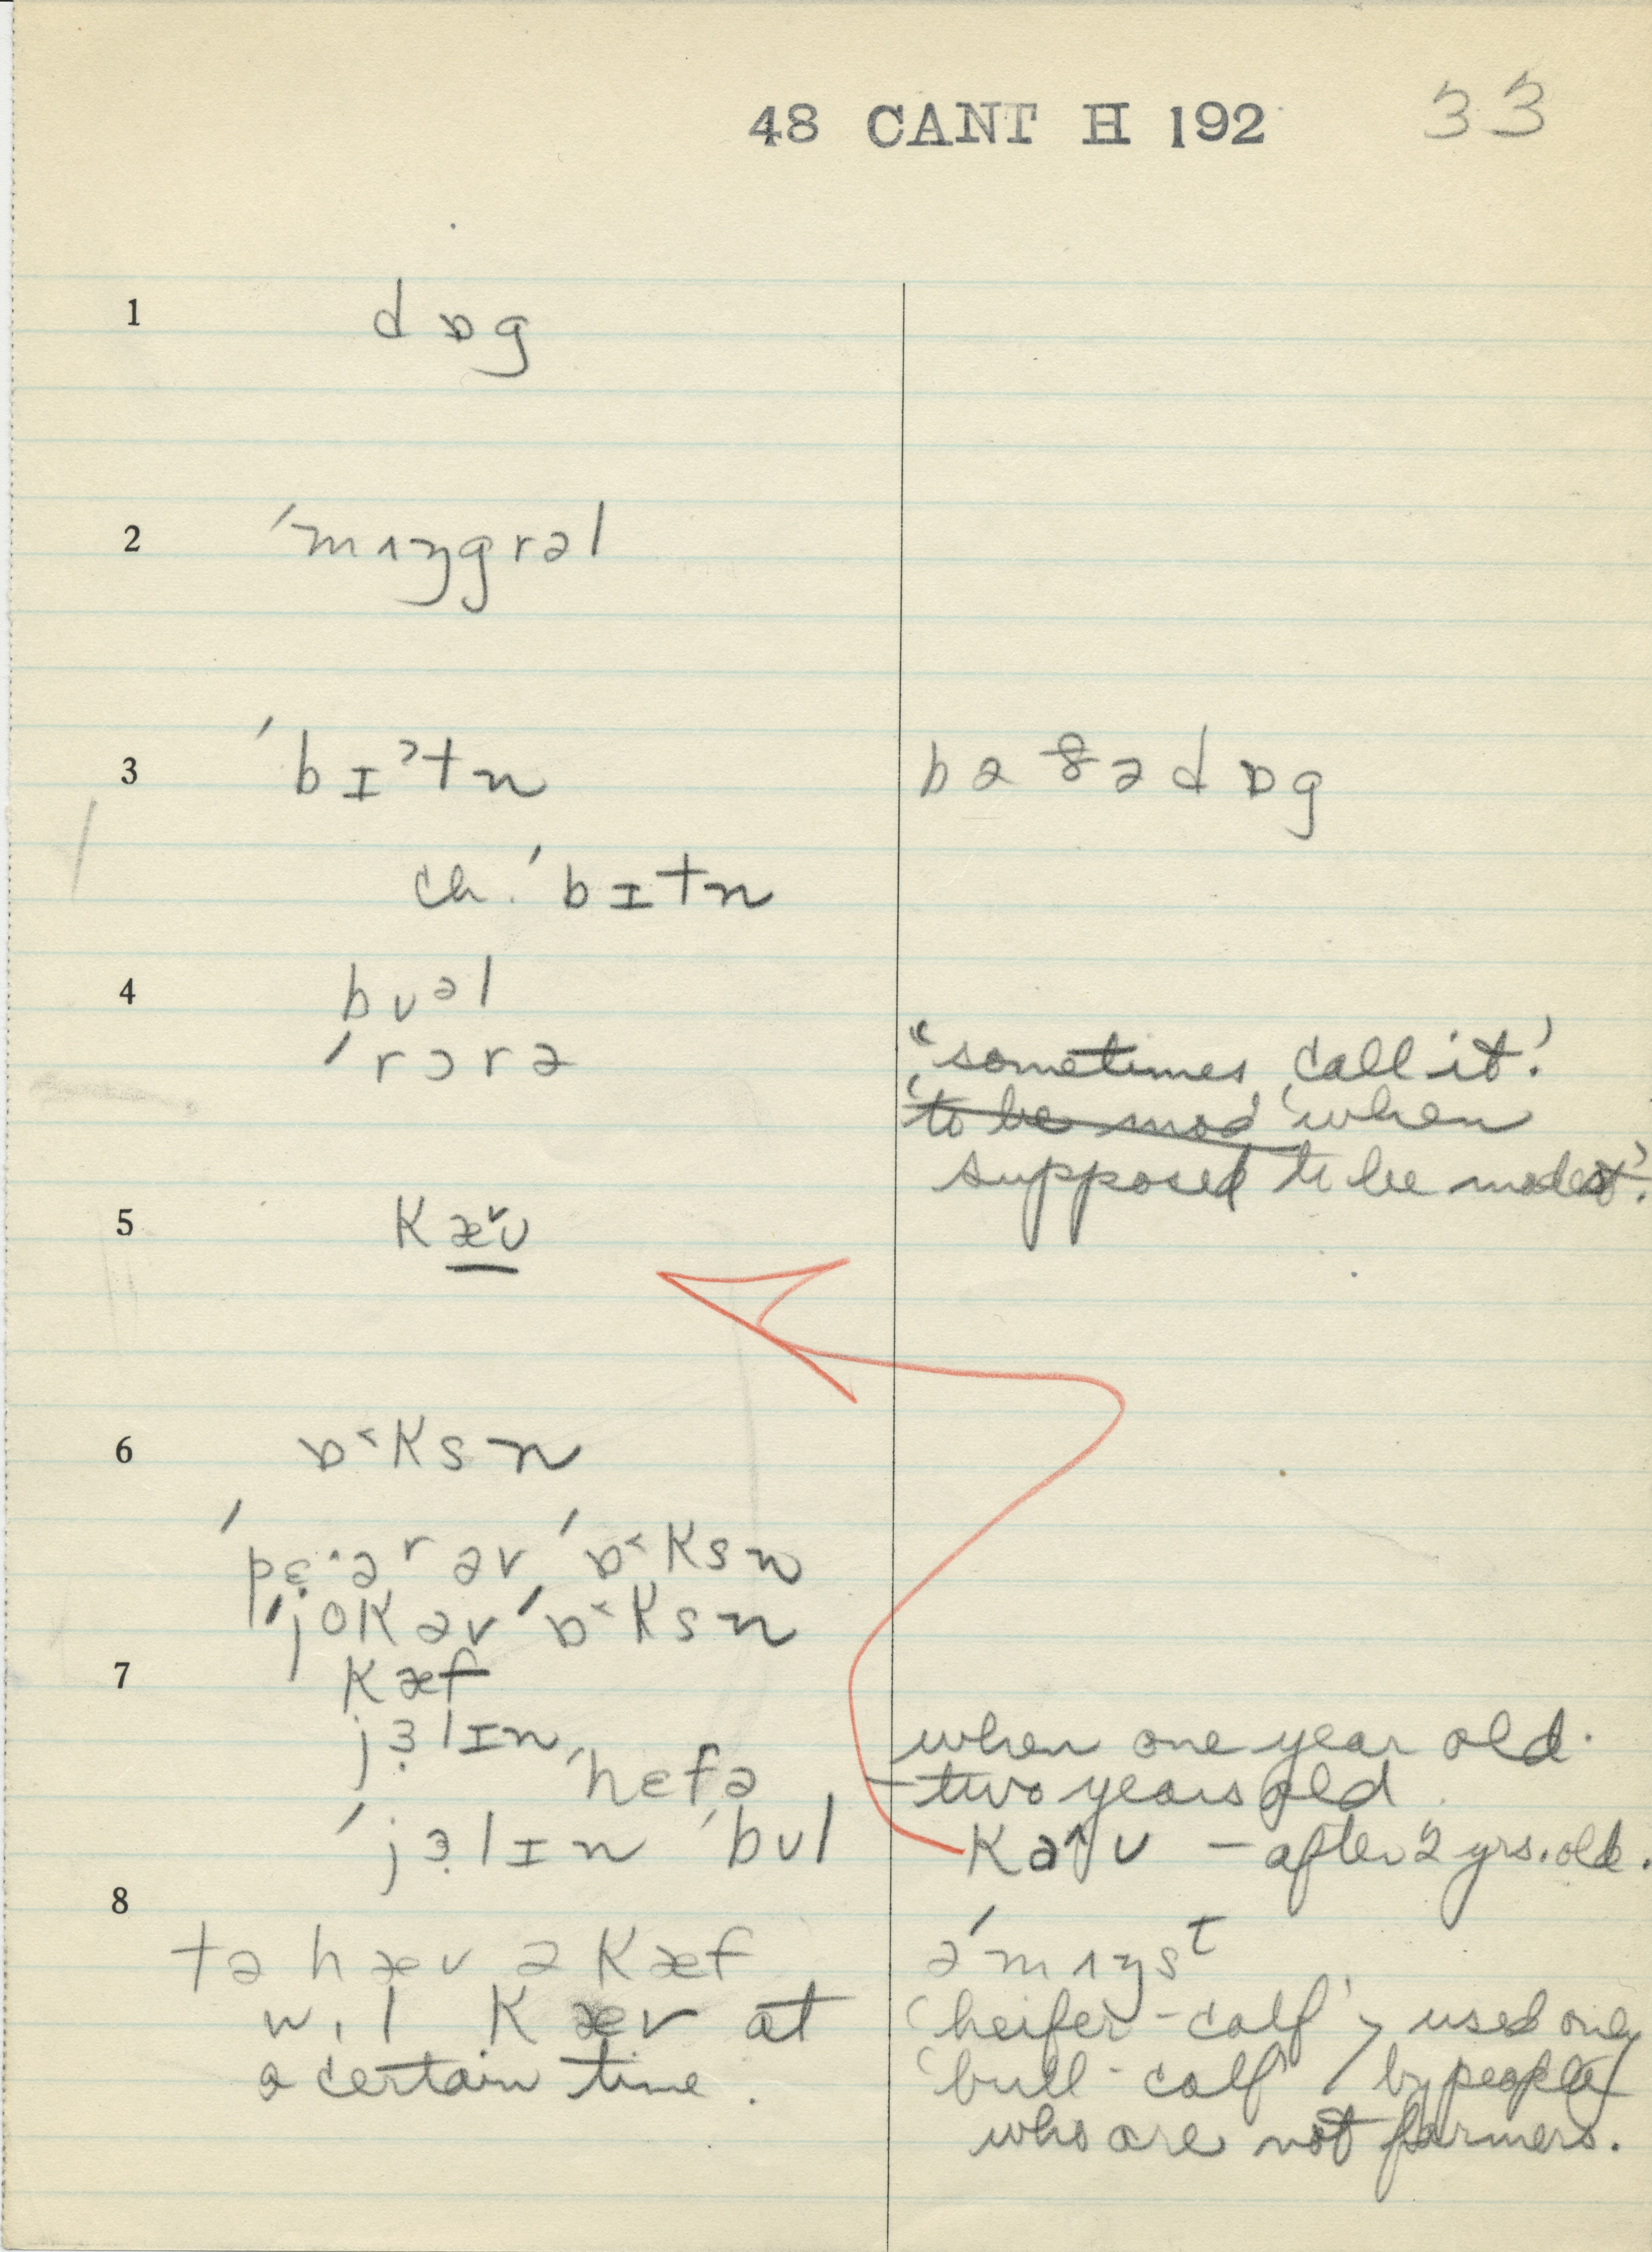 48 CANT H 192 33
1 dɒg
2 ˈmɪŋgrəl
3 ˈbɪˀtn bəʔədɒg
ch. ˈbɪtn
4 bʊᵊl
ˈrɔrə "sometimes call it.'
'to be mod' 'when
supposed to be modest'.
5 kæ˅ʊ
6 ɒ˂ksn
ˈpɛ·əʳ əv ˈɒ˂ksn
ˈjok əv ˈɒ˂ksn
7 kæf
jɜlɪn when one year old.
ˈhɛfə – two years old
ˈjɜlɪn ˈbʊl kə˄ʊ – after 2 yrs. old.
8
tə hæv ə kæf əˈmʌŋsᵗ
wɪl kæv at 'heifer-calf' > used only
a certain time. 'bull-calf' by people
who are not farmers.